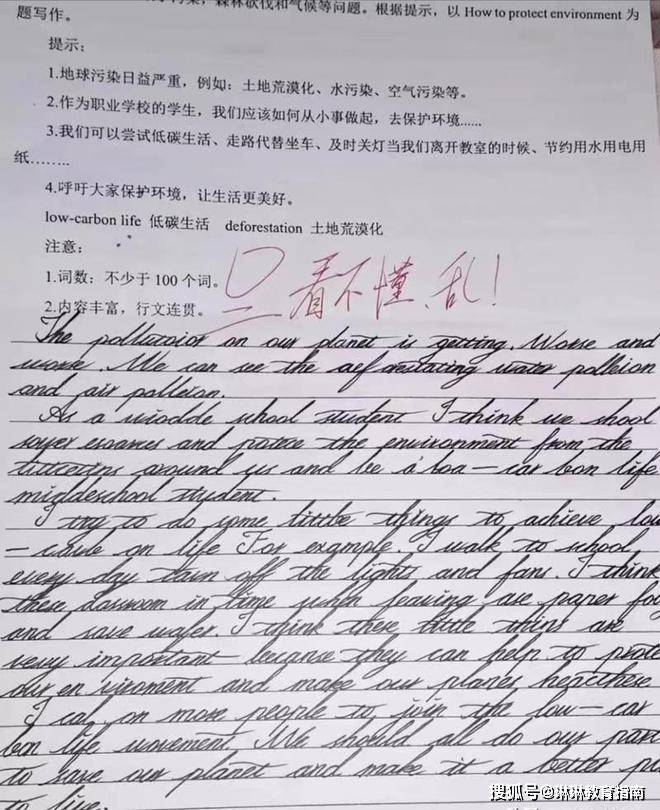 污染，森林砍伐和气候等问题。根据提示，以 How to protect environment 为
题写作。
提示：
1.地球污染日益严重，例如：土地荒漠化、水污染、空气污染等。
2.作为职业学校的学生，我们应该如何从小事做起，去保护环境......
3.我们可以尝试低碳生活、走路代替坐车、及时关灯当我们离开教室的时候、节约用水用电用
纸........
4.呼吁大家保护环境，让生活更美好。
low-carbon life 低碳生活 deforestation 土地荒漠化
注意：
1.词数：不少于 100 个词。
2.内容丰富，行文连贯。
看不懂、乱！
The pollutaior on our planet is getting. Worse and
worse. We can see the aeforestating water polleion
and air polleion.
As a middle school student I think we shool
and the environment from the
around us and be a loa - car bon life
middeschool student.
I try to do some little things to achieve low
- caule on life For example. I walk to school
every day turn off the lights and fans. I think
these classroom in time when leaving are paper
and save wafer. I think these little thint are
very important because they can help to prote
our en viroment and make our planes
I cal on more people to join the low - car
bon life movement. We should all do our part
to save our planet and make it a better
to live.
搜狐号@琳琳教育指南